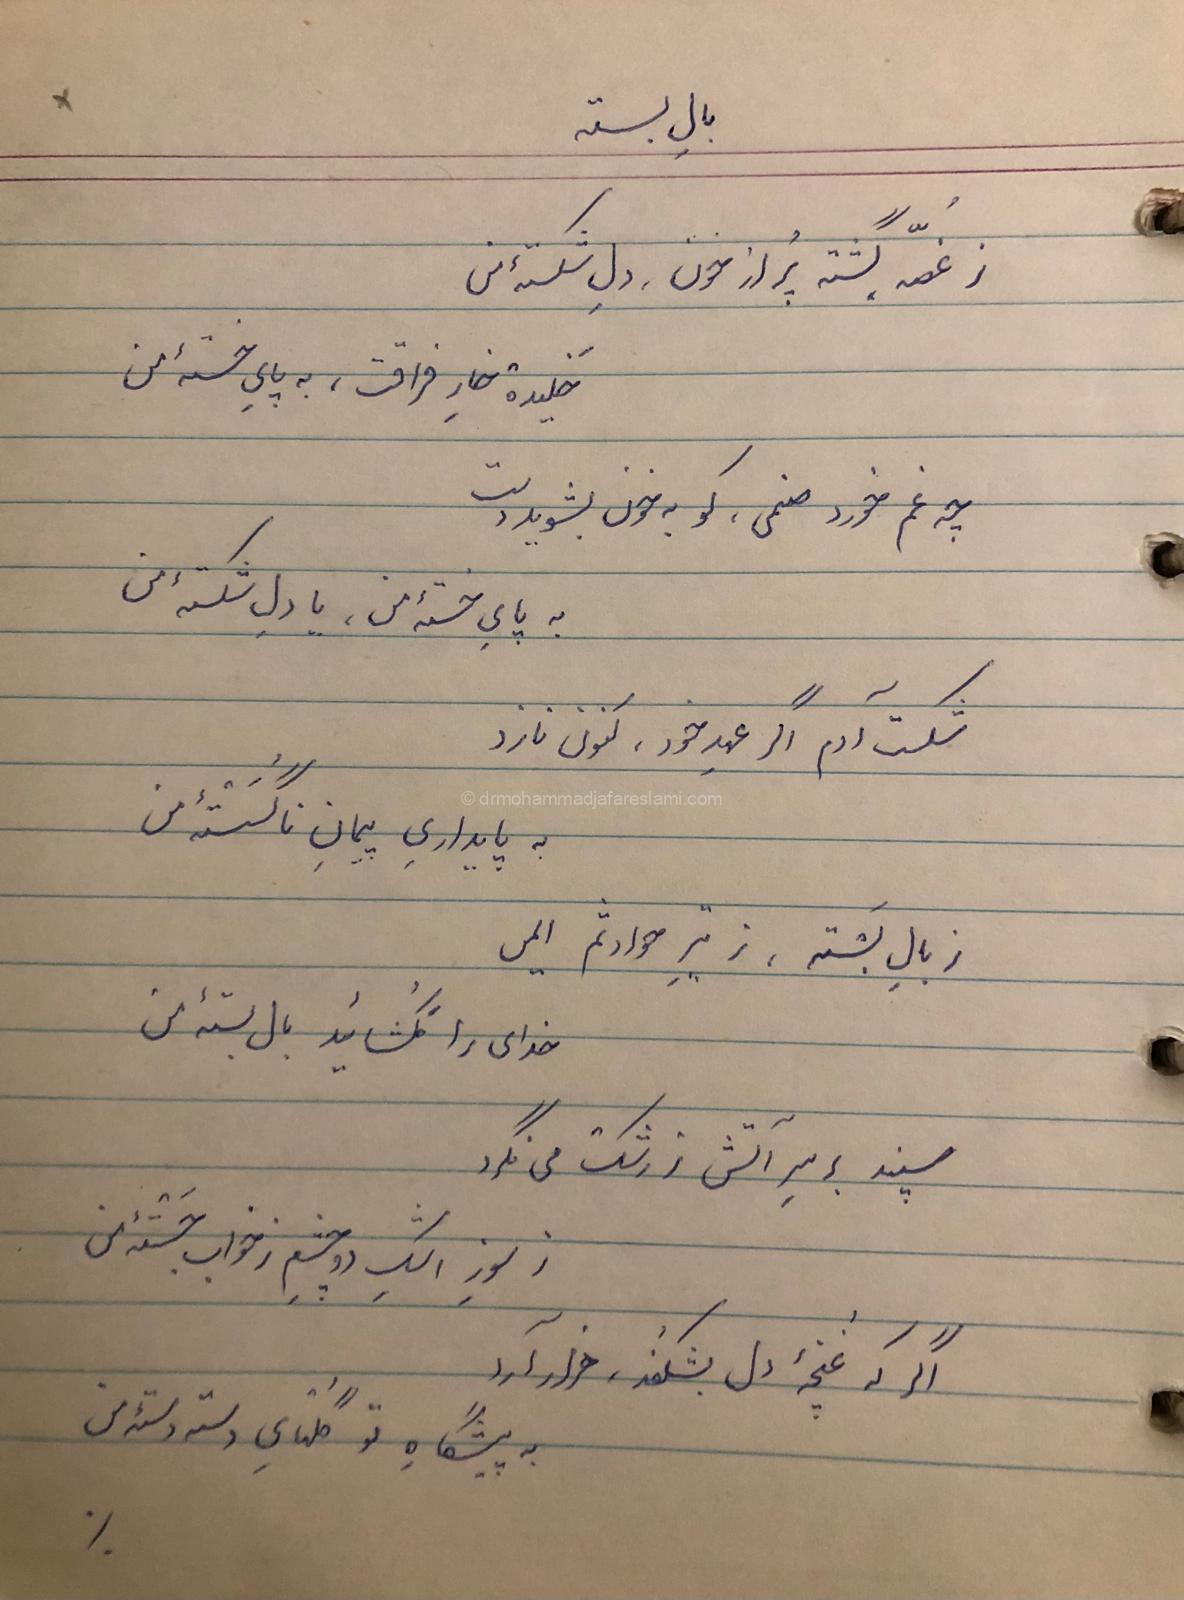 بالِ بسته
ز غُصّه گشته پُر از خون، دلِ شکستهٔ من
خَلیده خارِ فراقت، به پایِ خستهٔ من
چه غم خورد صنمی، کو به خون بشوید دست
به پایِ خستهٔ من، یا دلِ شکستهٔ من
شکست آدم اگر عهدِ خود، کنون نازد
به پایداریِ پیمانِ ناگُسَستهٔ من
© drmohammadjafareslami.com
ز بالِ بَسته، ز تیرِ حوادثم ایمن
خدای را بُگشائید بال بستهٔ من
سپند بر سرِ آتش ز رشک می نگرد
ز سوزِ اشکِ دو چشمِ ز خواب جَستهٔ من
اگر که غُنچهٔ دل بشکُفد، خزان آرد
به پیشگاهِ تو گُلهایِ دسته دستهٔ من